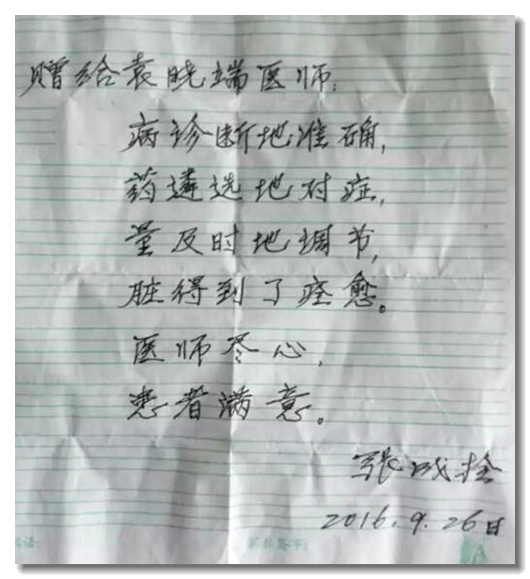 赠给袁晓端医师:
病诊断地准确,
药遴选地对症,
量及时地调节,
脏得到了痊愈。
医师尽心,
患者满意。
张成拴
2016.9.26日
家长签字: